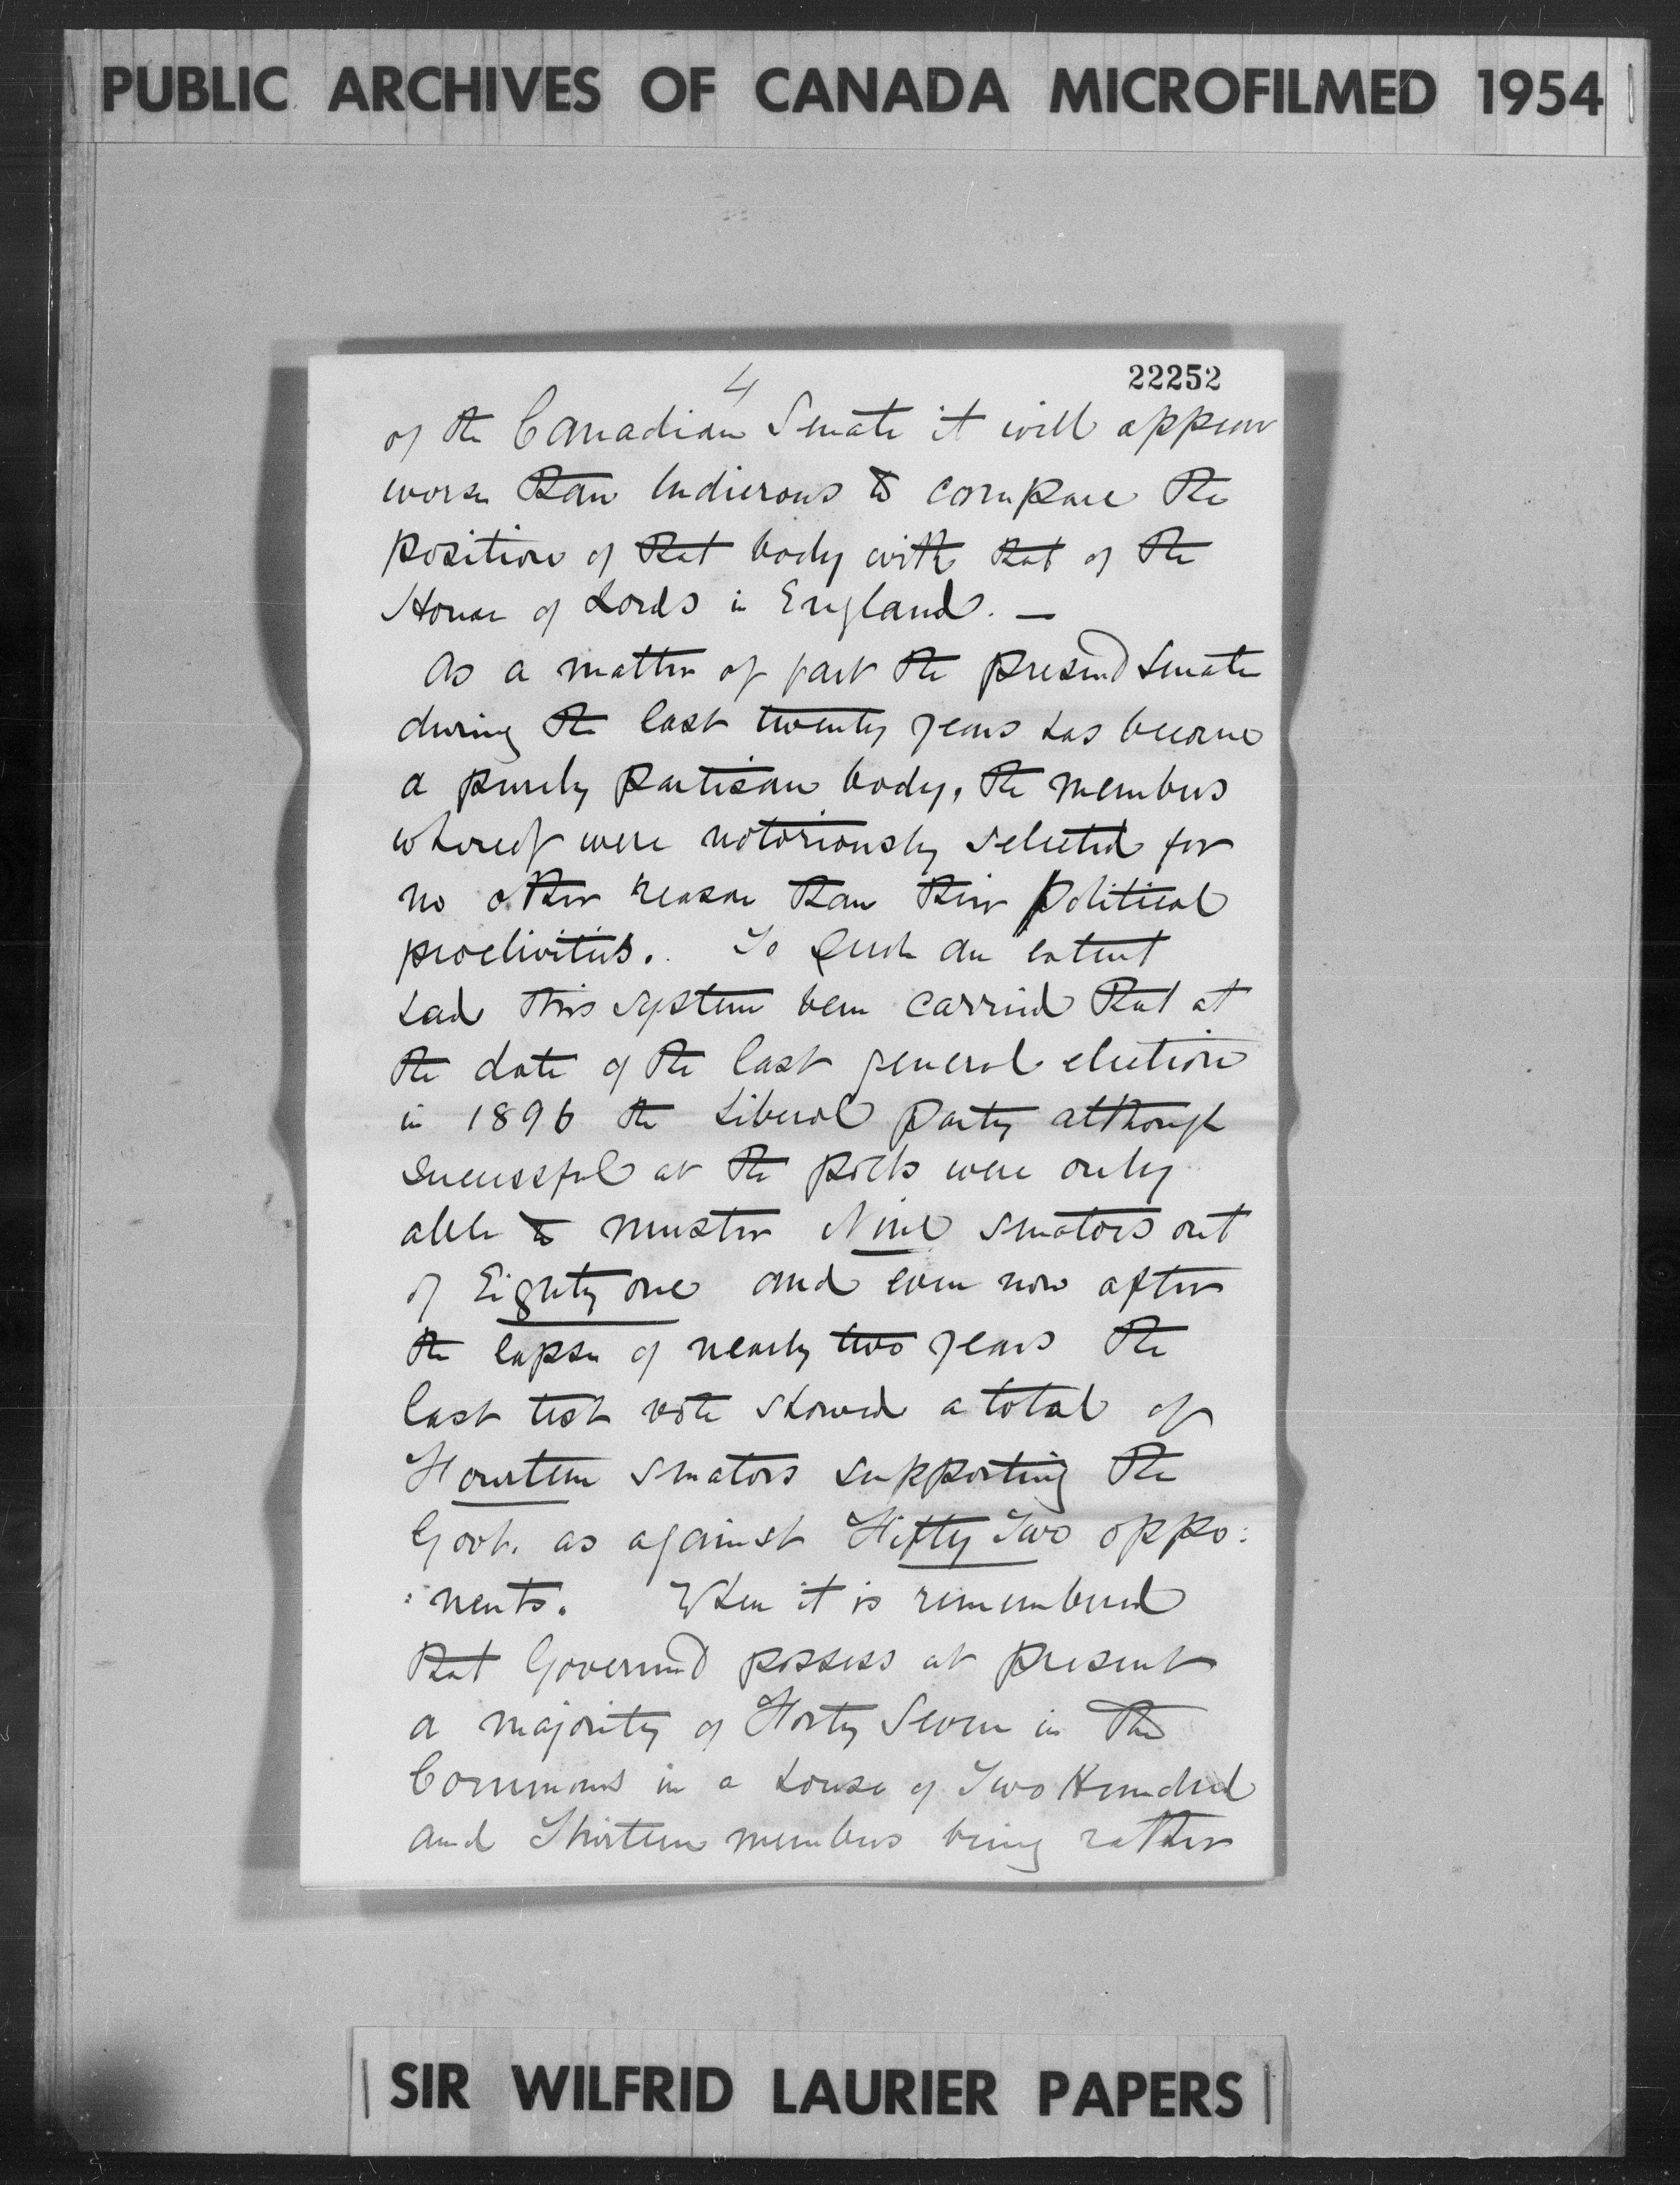 PUBLIC ARCHIVES OF CANADA MICROFILMED 1954
4
22252
of the Canadian Senate it will appear
worse than ludicrous to compare the
position of that body with that of the
House of Lords in England. —
As a matter of fact the present Senate
during the last twenty years has become
a purely partisan body, the members
whereof were notoriously selected for
no other reason than their political
proclivities. To such an extent
had this system been carried that at
the date of the last general election
in 1896 the Liberal party although
successful at the polls were only
able to muster Nine senators out
of Eighty one and even now after
the lapse of nearly two years the
last test vote showed a total of
Fourteen senators supporting the
Govt. as against Fifty Two oppo:
:nents. When it is remembered
that Governmt possess at present
a majority of Forty Seven in the
Commons in a house of Two Hundred
and Thirteen members being rather
SIR WILFRID LAURIER PAPERS